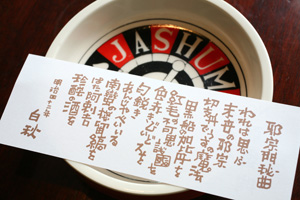 JASHUM
邪宗門秘曲
われは思ふ
末世の邪宗
切支丹でうすの魔法
黒船の加比丹を
紅毛の不可思議国を
色赤きびいどろを
匂鋭き
あんじゃべいいる
南蛮の桟留縞を
はた阿剌吉
珍酡の酒を
白秋